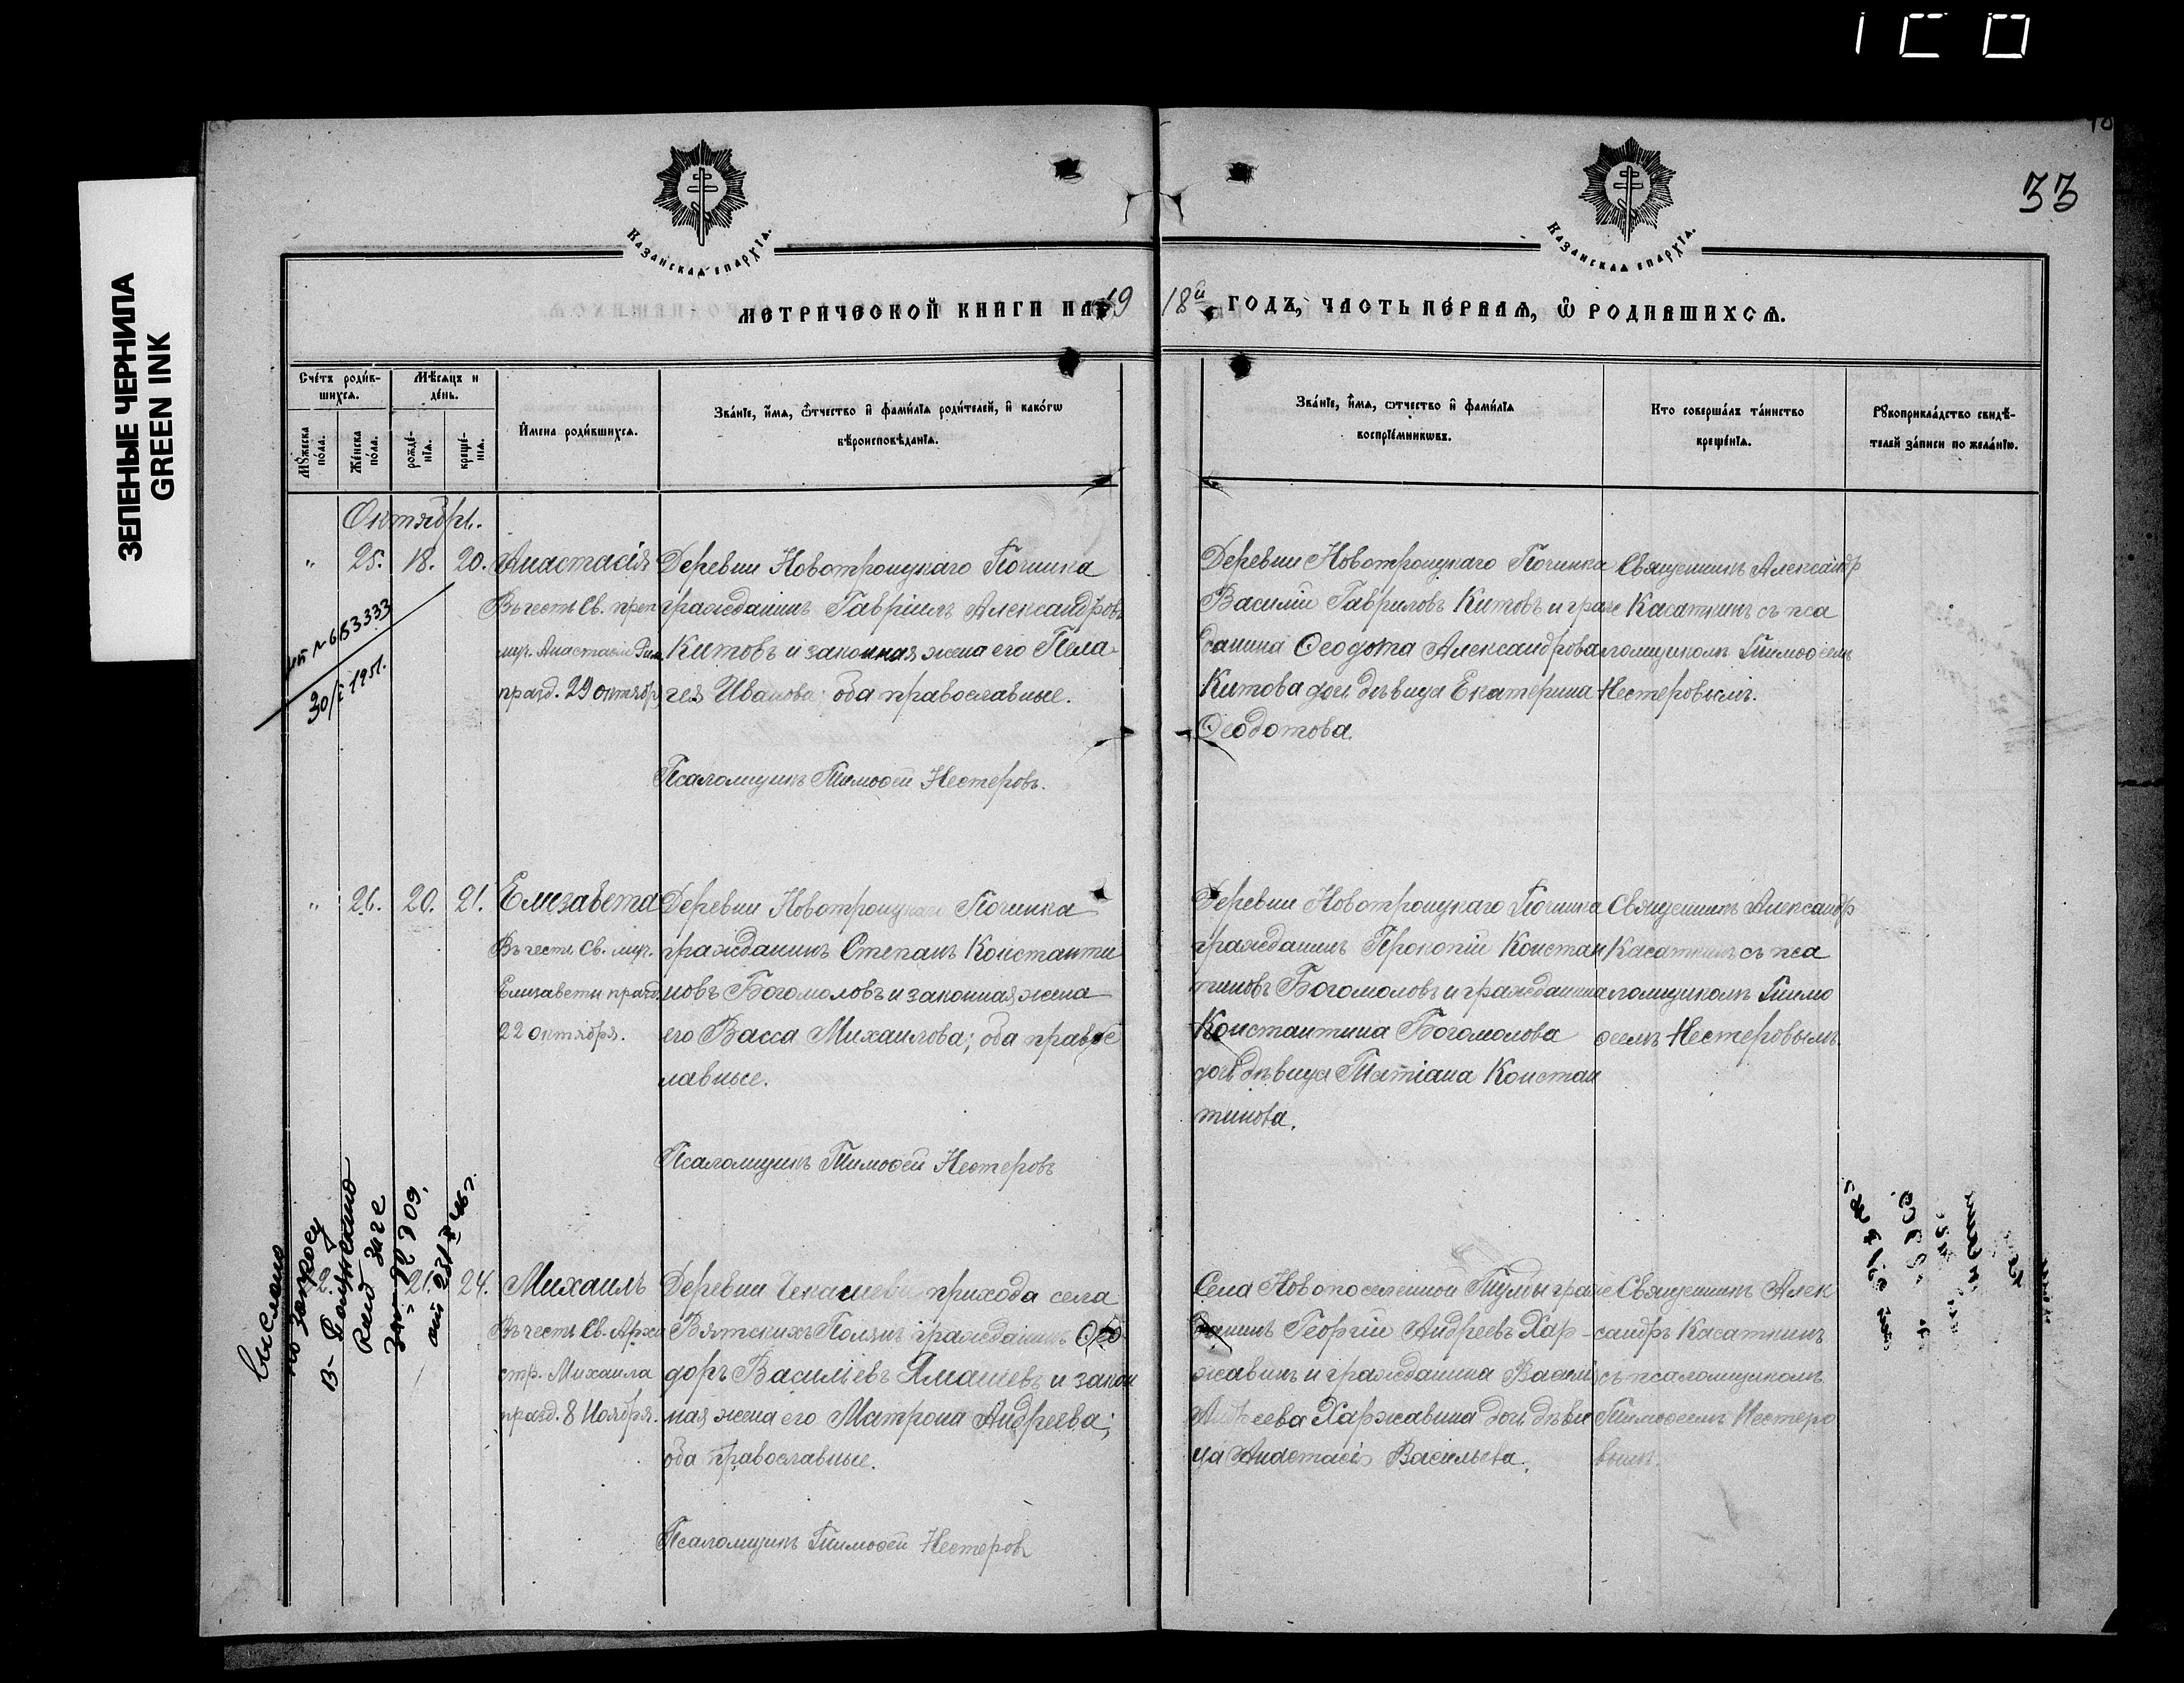 ЗЕЛЕНЫЕ ЧЕРНИЛА
GREEN INK
33
Казанская епархїѧ.
Казанская епархїѧ.
МЕТРИЧЕСКОЙ КНИГИ НА 19
18й ГОДЪ, ЧАСТЬ ПЕРВАЯ, Ѡ РОДИВШИХСЯ.
Счетъ родив-
шихся.
Мѣсяцъ и
день.
Мужеска
пола.
Женска
пола.
рожде-
нїя.
креще-
нїя.
Имена родившихся.
Званїе, имя, ѿчество и фамилїя родителей, и какогѡ
вѣроисповѣданїя.
Званїе, имя, ѿчество и фамилїя
воспрїемниковъ.
Кто совершалъ таинство
крещенїя.
Рукоприкладство свидѣ-
телей записи по желанїю.
Октябрь.
" 25. 18. 20. Анастасія
Въ честь Св. преп
муч. Анастасіи Рим.
празд. 29 октябр
№ 683333
30/I 1951.
Деревни Новотроицкаго Починка
гражданинъ Гавріилъ Александровъ
Китовъ и законная жена его Пела
гея Иванова; оба православные.
Псаломщикъ Тимоѳей Нестеровъ.
Деревни Новотроицкаго Починка
Василій Гавриловъ Китовъ и граж
данина Ѳеодота Александрова
Китова дочь дѣвица Екатерина
Ѳеодотова.
Священникъ Александр
Касаткинъ съ пса
ломщикомъ Тимоѳеемъ
Нестеровымъ.
" 26. 20. 21. Елизавета
Въ честь Св. муч.
Елизаветы празд.
22 октября.
Деревни Новотроицкаго Починка
гражданинъ Степанъ Константи
новъ Богомоловъ и законная жена
его Васса Михаилова; оба правос
лавные.
Псаломщикъ Тимоѳей Нестеровъ
Деревни Новотроицкаго Починка
гражданинъ Прокопій Констан
тиновъ Богомоловъ и гражданина
Константина Богомолова
дочь дѣвица Татіана Констан
тинова.
Священникъ Александр
Касаткинъ съ пса
ломщикомъ Тимо
ѳеемъ Нестеровымъ.
выслано
по запросу
21. 24. Михаилъ
Въ честь Св. Архи
стр. Михаила
празд. 8 Ноября.
Деревни Чекашева прихода села
Вятскихъ Полянъ гражданинъ Ѳео
доръ Василіевъ Ямашевъ и закон
ная жена его Матрона Андреева;
оба православные.
Псаломщикъ Тимоѳей Нестеровъ
Села Новопоселенной Тумы граж
данинъ Георгій Андреевъ Хар-
жавинъ и гражданина Васил
Андреева Харжавина дочь дѣви
ца Анастасія Васильева.
Священникъ Алек
сандръ Касаткинъ
съ псаломщикомъ
Тимоѳеемъ Нестеро
вымъ.